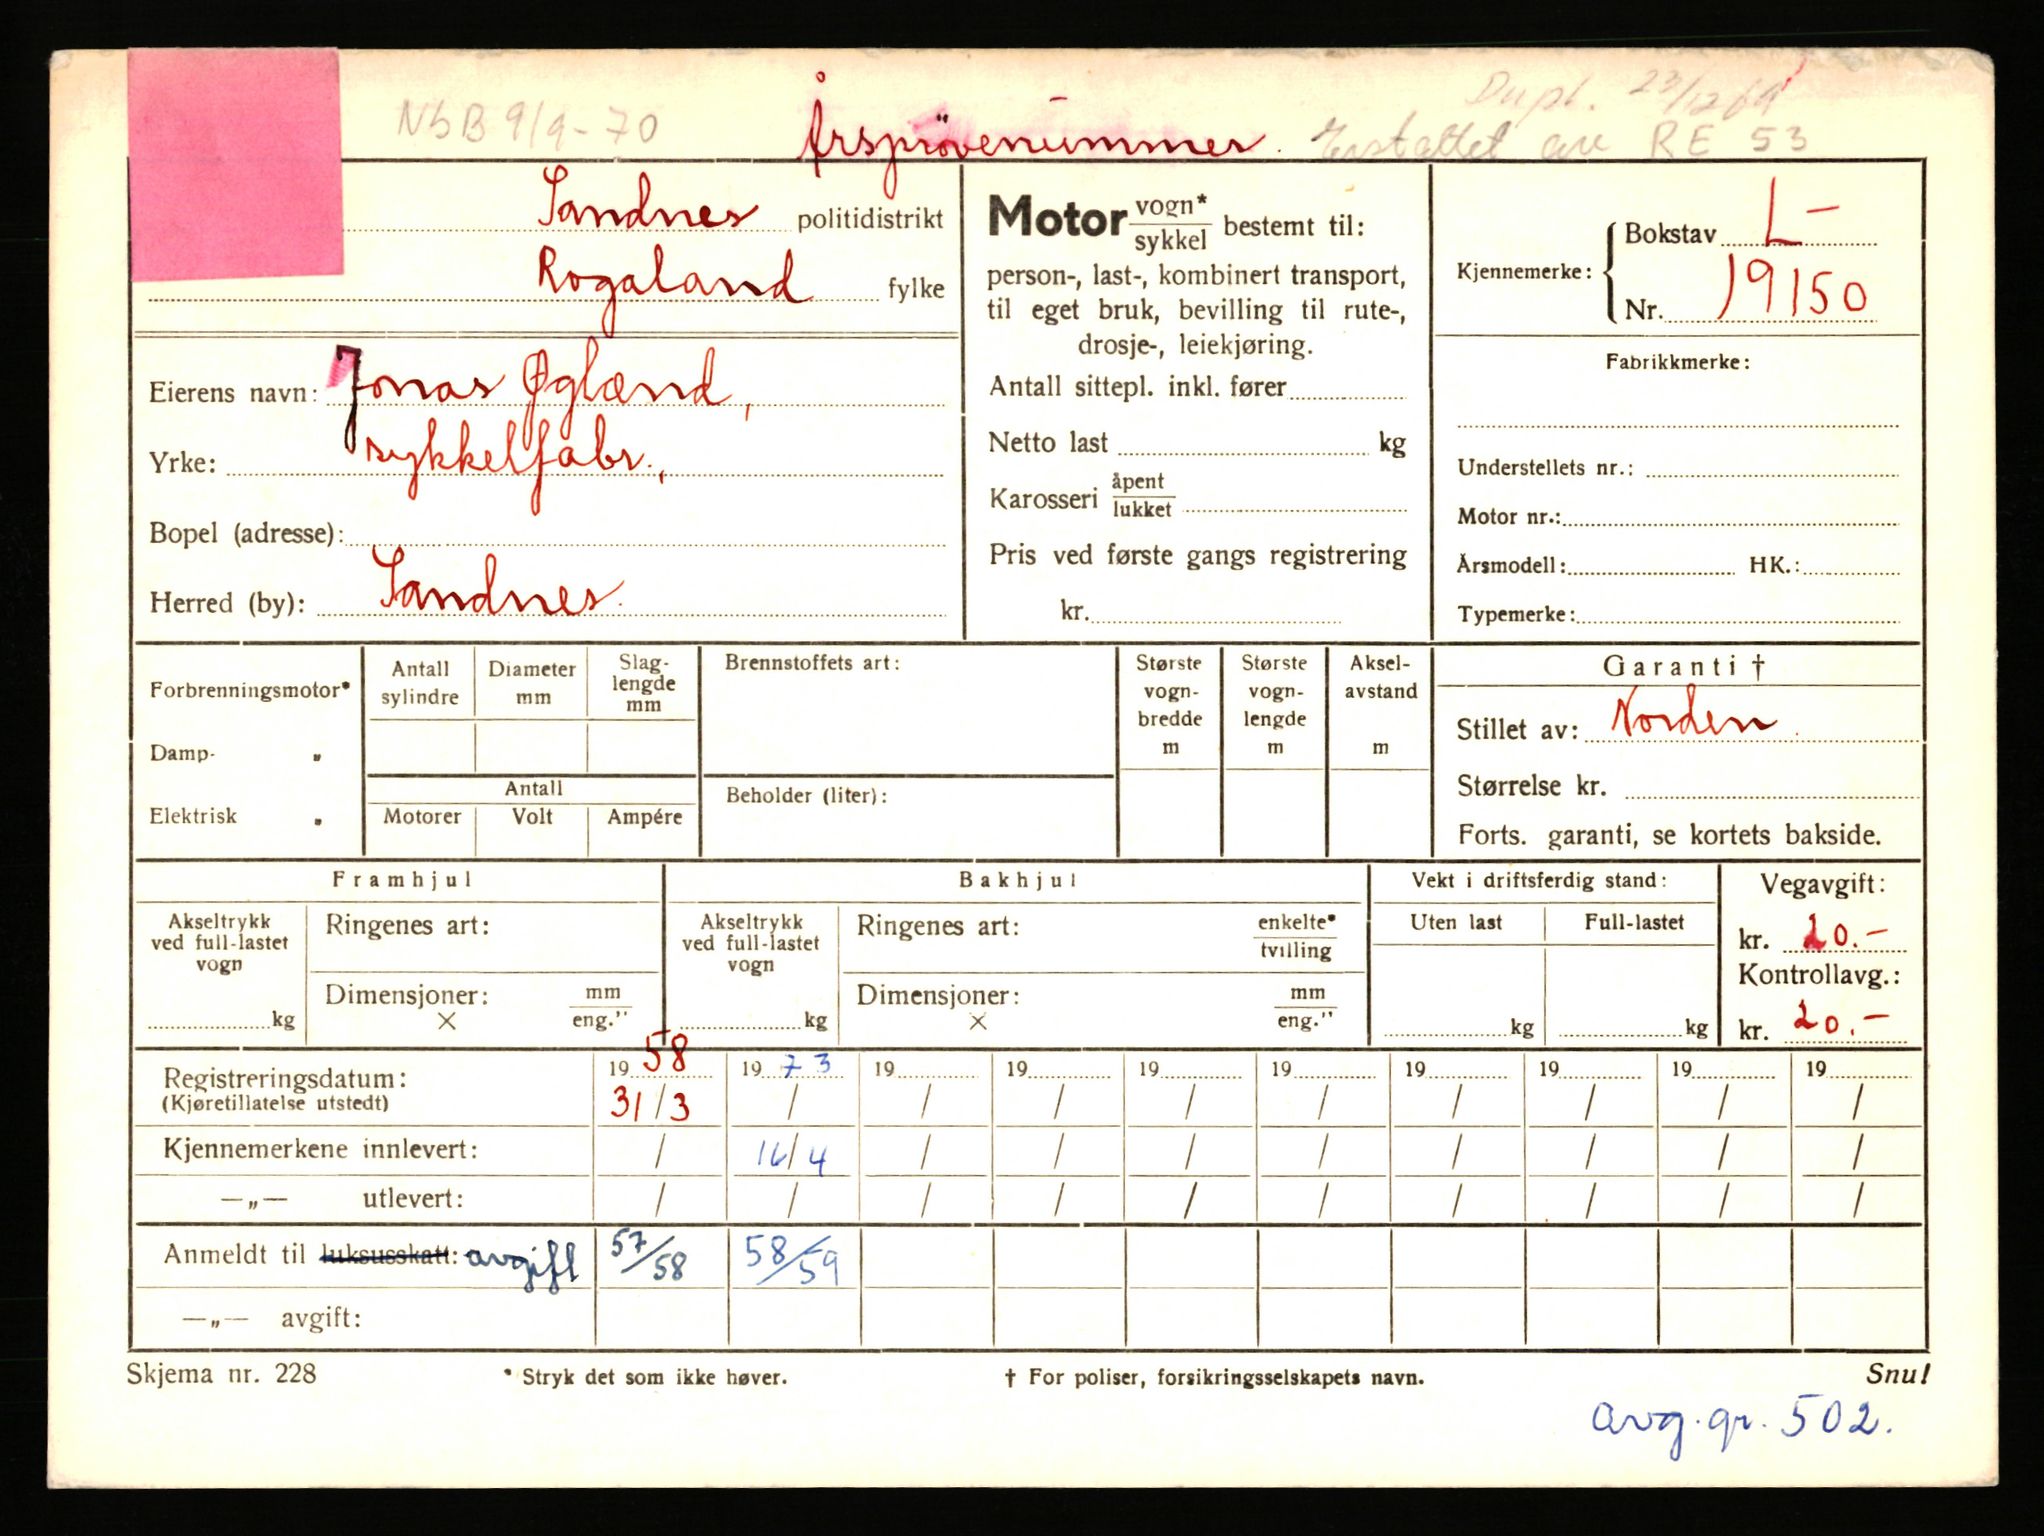 Dupl. 23/12 69
NbB 9/9-70 Årsprövenummer. Erstattet av RE 53
Sandnes politidistrikt
Rogaland fylke
Eierens navn: Jonas Øglænd,
Yrke: sykkelfabr.,
Bopel (adresse):
Herred (by): Sandnes.
Motor vogn* / sykkel bestemt til:
person-, last-, kombinert transport,
til eget bruk, bevilling til rute-,
drosje-, leiekjøring.
Antall sittepl. inkl. fører
Netto last kg
Karosseri åpent / lukket
Pris ved første gangs registrering
kr.
Kjennemerke: Bokstav L-
Nr. 19150
Fabrikkmerke:
Understellets nr.:
Motor nr.:
Årsmodell: HK.:
Typemerke:
Forbrenningsmotor*
Damp- „
Elektrisk „
Antall sylindre
Diameter mm
Slag-
lengde
mm
Antall
Motorer Volt Ampére
Brennstoffets art:
Beholder (liter):
Største
vogn-
bredde
m
Største
vogn-
lengde
m
Aksel-
avstand
m
Garanti †
Stillet av: Norden.
Størrelse kr.
Forts. garanti, se kortets bakside.
Framhjul
Akseltrykk
ved full-lastet
vogn
kg
Ringenes art:
Dimensjoner: mm / eng."
×
Bakhjul
Akseltrykk
ved full-lastet
vogn
kg
Ringenes art: enkelte* / tvilling
Dimensjoner: mm / eng."
×
Vekt i driftsferdig stand:
Uten last Full-lastet
kg kg
Vegavgift:
kr. 20.-
Kontrollavg.:
kr. 20.-
Registreringsdatum: 1958 1973 19 19 19 19 19 19 19 19
(Kjøretillatelse utstedt) 31/3 / / / / / / / / /
Kjennemerkene innlevert: / 16/4 / / / / / / / /
—„— utlevert: / / / / / / / / / /
Anmeldt til luksusskatt: avgift 57/58 58/59
—„— avgift:
Skjema nr. 228 * Stryk det som ikke høver. † For poliser, forsikringsselskapets navn. Snu!
avg. gr. 502.